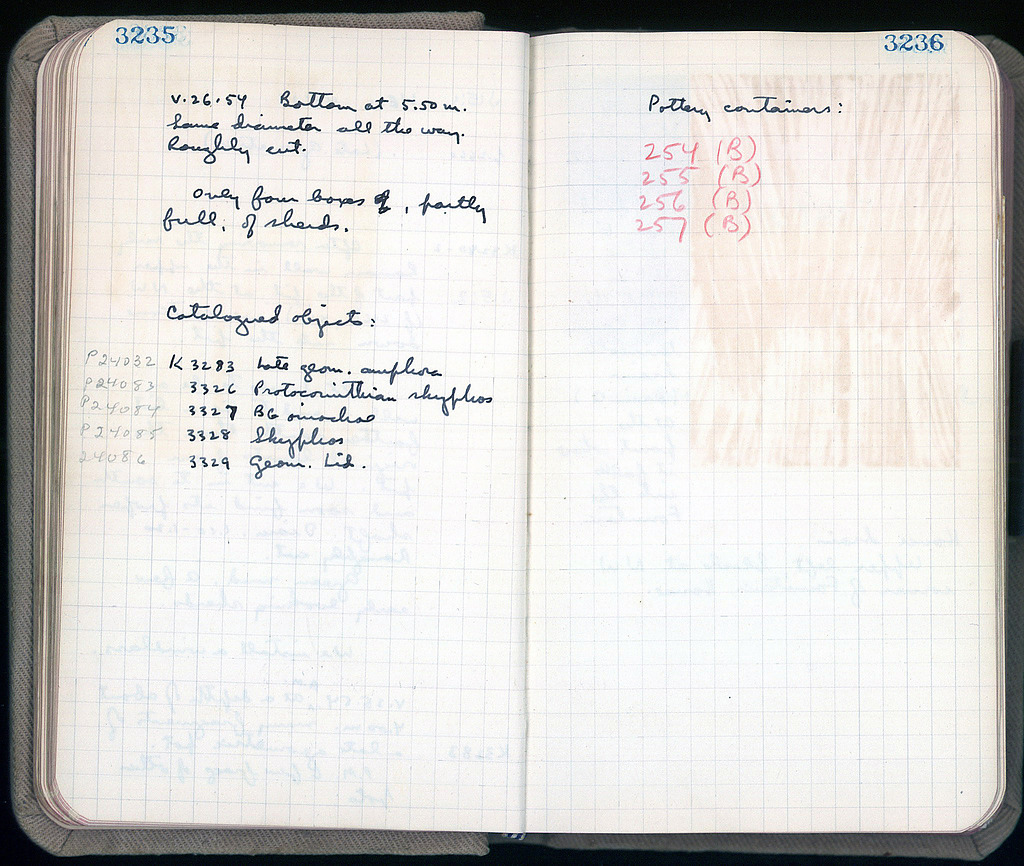 3235
V.26.54 Bottom at 5.50 m.
Same diameter all the way.
Roughly cut.
Only four boxes, partly
full, of sherds.
Catalogued objects:
P24032 K 3283 Late geom. amphora
P24083 3326 Protocorinthian skyphos
P24084 3327 BG oinochoe
P24085 3328 Skyphos
24086 3329 Geom. Lid.
3236
Pottery containers:
254 (B)
255 (B)
256 (B)
257 (B)